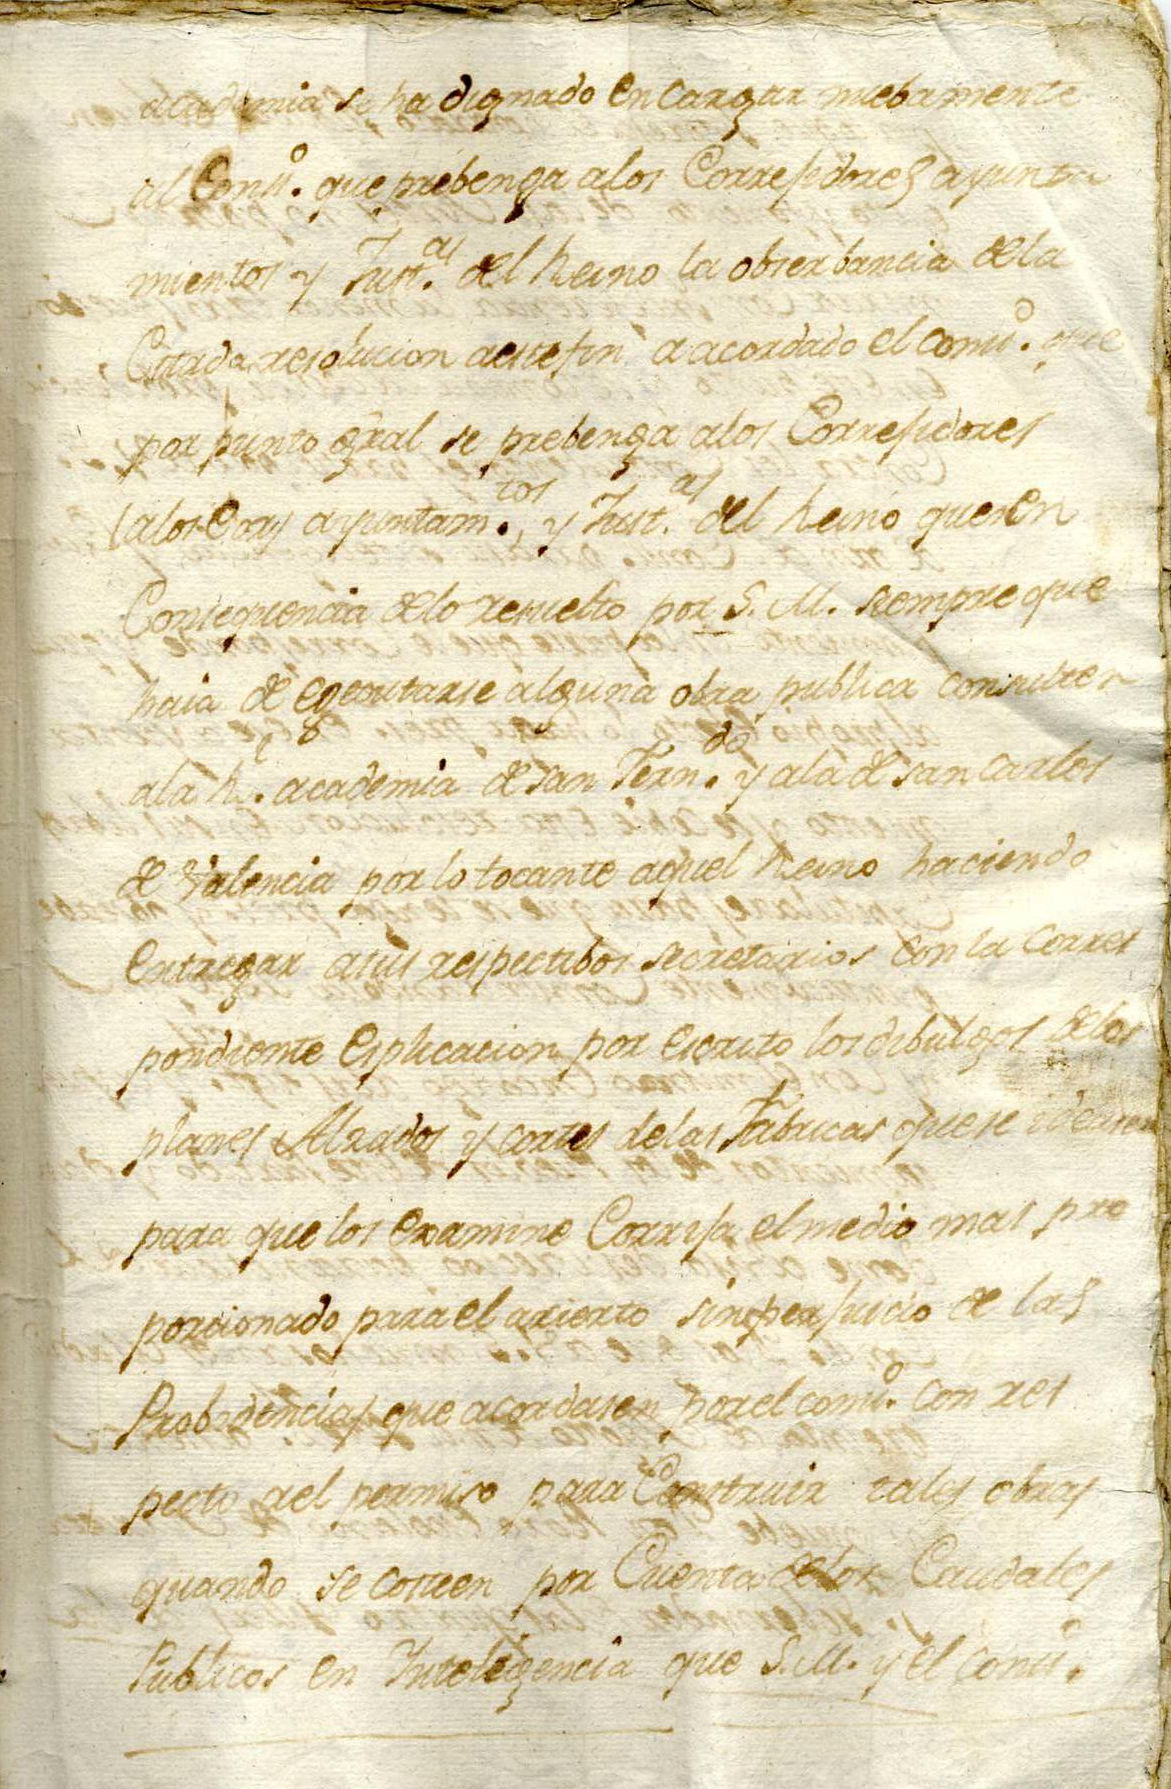 academia se ha dignado encargar nuebamente
al Cons.º que prebenga a los Corregidores ayunta
mientos y Just.as del Reino la obserbancia de la
Citada resolucion a este fin a acordado el cons.º que
por punto gral se prebenga a los Corregidores
ayuntam.tos y Just.as del Reino que en
Consequencia de lo resuelto por S. M. siempre que
haia de egecutarse alguna obra publica consulten
a la R.l academia de san Fern.do y a la de san Carlos
de Valencia por lo tocante aquel Reino haciendo
entregar a sus respectibos secretarios con la corres
pondiente esplicacion por escrito los dibujos de los
planes Alzados y cortes de las Fabricas que se ideasen
para que los examine Corrija el medio mas pro
porcionado para el acierto sin perjuicio de las
Probidencias que acordasen por el cons.º con res
pecto a el permiso para Construir tales obras
quando se costeen por Cuenta de los Caudales
Publicos en Inteligencia que S. M. y el Cons.º